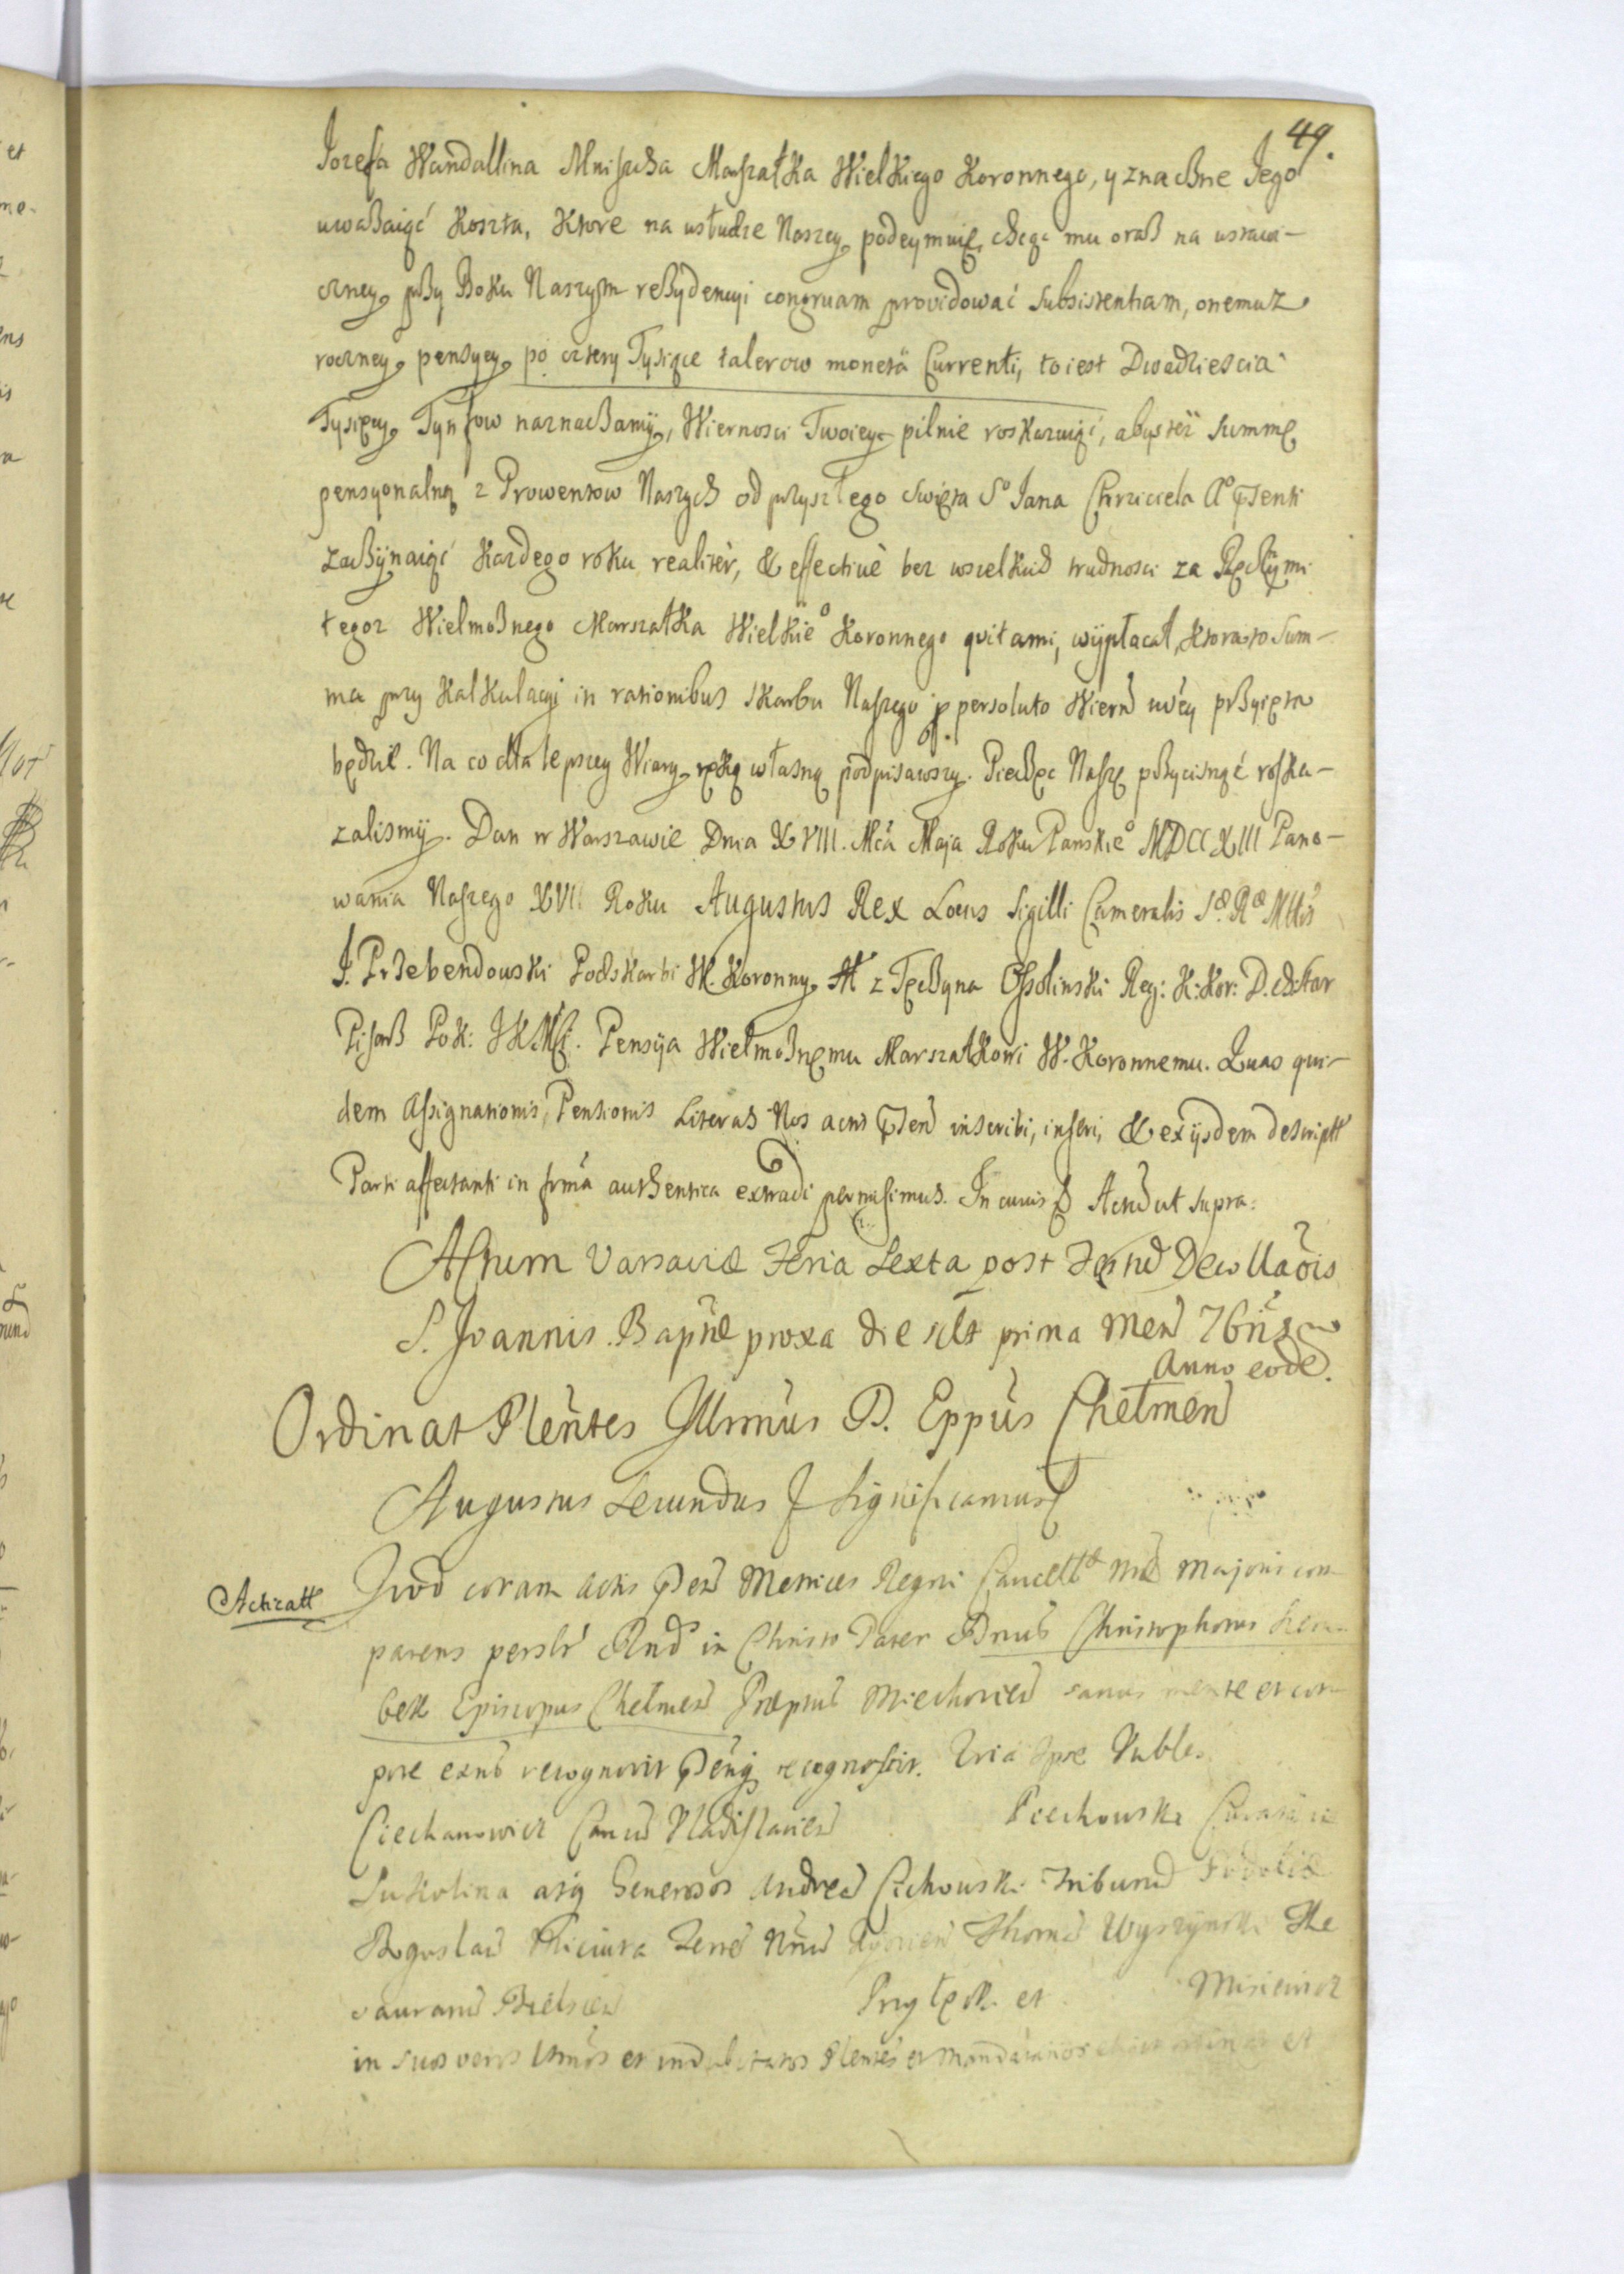 49.
Jozefa Wandallina Mniszcha Marszałka Wielkiego Koronnego, y znaczne Jego
uważaiąć Koszta, Ktore na usłudze Naszey podeymuię, chcąc mu oraz na ustawi-
czney przy Boku Naszym rezydencyi congruam providować subsistentiam, onemuz
roczney pensyey po cztery Tysiące talerow monetâ Currenti, to iest Dwadziescia
Tysięcy Tynfow naznaczamy, Wiernosci Twoiey pilnie roskazuiąć, abyś tęż Summę
pensyonalną z Prowentow Naszych od przyszłego Swięta So Jana Chrzciciela Ao pnti
zaczynaiąć Kazdego roku realiter, & effectivè bez wszelkich trudnosci za Ręcznymi
tegoz Wielmożnego Marszałka Wielkieo Koronnego qvitami, wypłacał, Ktora to Sum-
ma przy Kalkulacyi in rationibus skarbu Naszego p persoluto Wiern: twey przyięta
będzie. Na co dla lepszey Wiary ręką własną podpisawszy. Pieczęc Naszę przycisnąć roska-
zalismy. Dan w Warszawie Dnia XVIII. Mca Maja Roku Panskieo MDCCXIII Pano-
wania Naszego XVII Roku Augustus Rex Locus Sigilli Cameralis Sæ Ræ Mttis
J. Przebendowski Podskarbi W. Koronny F z Tęczyna Ossolinski Reg: K: Kor: D. & Star
Pisarz Pok: JKMci. Pensyja Wielmożnemu Marszałkowi W. Koronnemu. Quas qui-
dem Assignationis, Pensionis Literas Nos actis pnt inscribi, inseri, & ex ijsdem descript
Parti affectanti in formâ authentica extradi permisimus. In cuius Act ut supra.
Actum Varsaviæ Feria Sexta post Festum Decollaõis
S. Joannis Baptæ proxa die scilt prima Mens 7bris
Anno eod.
Ordinat Plentes Illrmus D. Eppus Chełmen
Augustus Secundus Significamus
Acticatt
Quod coram actis pnt Metrices Regni Cancellæ Mis Majoris com
parens perslr Rnd in Christo Pater Dnus Christophorus Szem
bek Episcopus Chełmen Præptus Miechovien sanus mente et cor
pore exns recognovit pntq recognoscit. Nobles
Ciechanowicz Canus Vladislavien Piechowski
atq Generosos Andrea Cichowski Tribunu Podoliæ
Boguslau Terre Thoma Wyszynski The
saurariu Bielscen Przyłęcki et Misiewicz
in suos veros ltmos et indubitatos Plentes et Mandatarios et